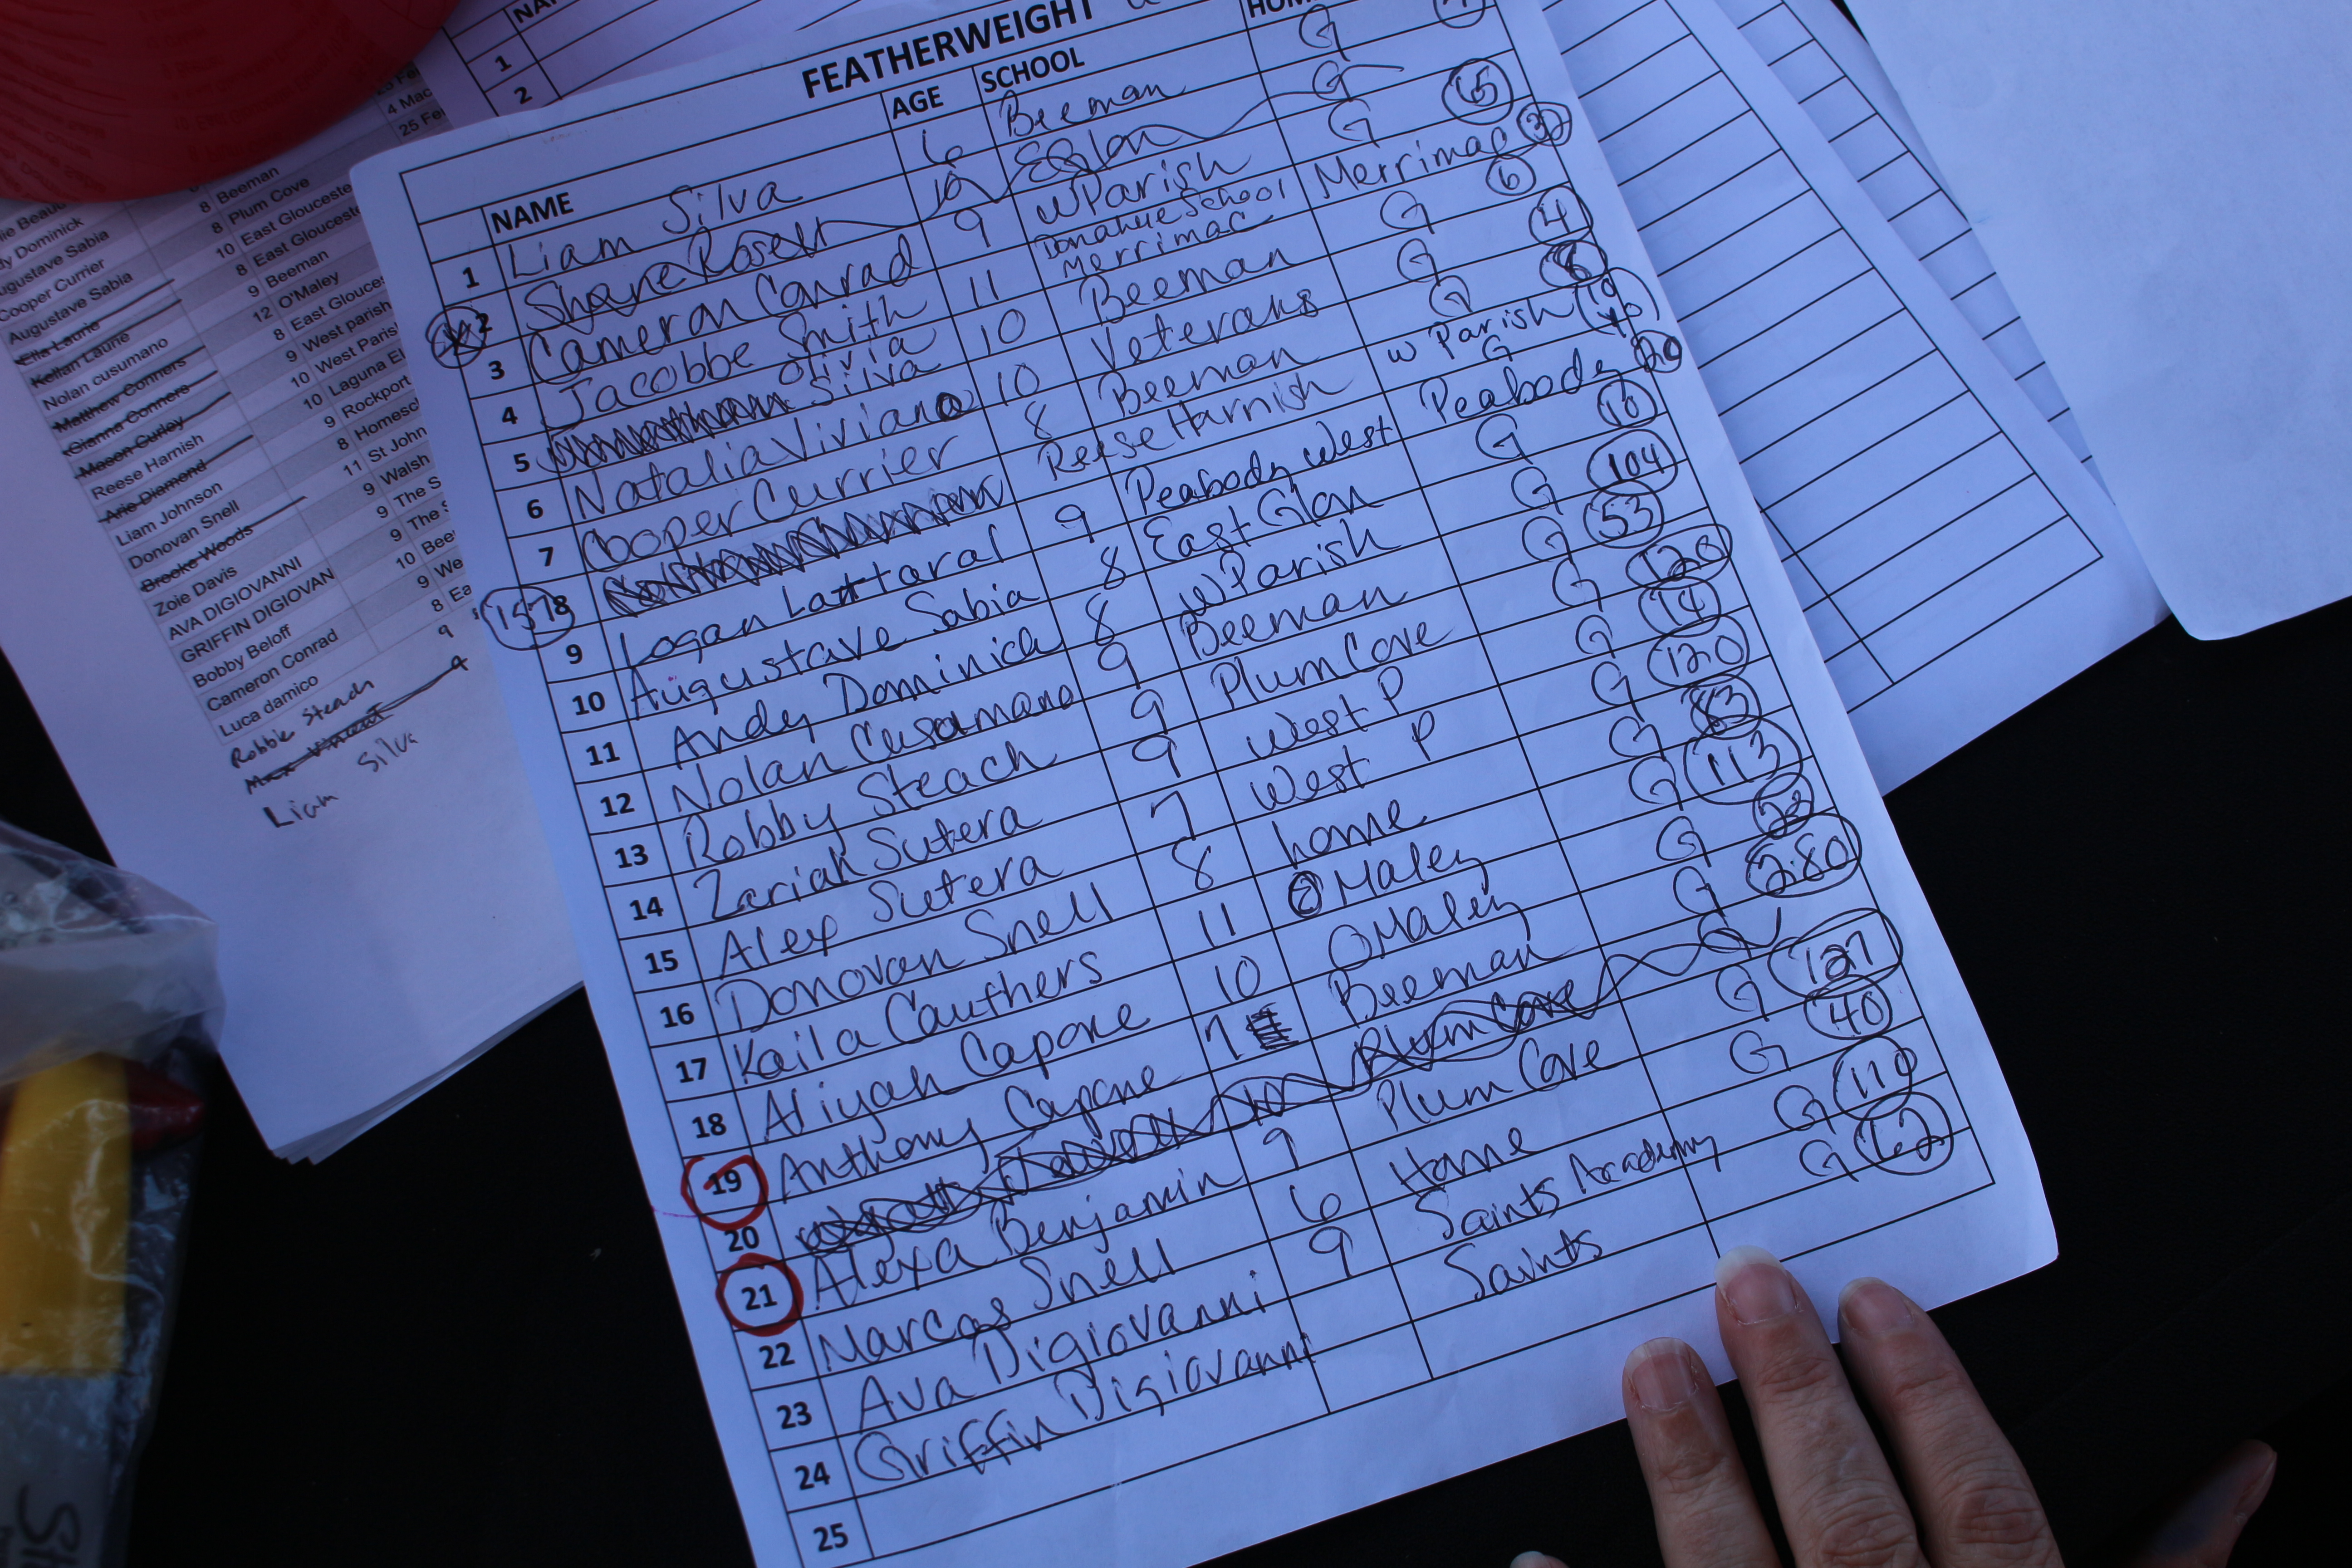 FEATHERWEIGHT
NAME AGE SCHOOL
1 Liam Silva 6 Beeman G
2 Shane Rosen 10 EGlon G
3 Cameron Conrad 9 W Parish G 65
4 Jacobbe Smith 11 Donahue School Merrimac Merrimac 32
5 Olivia Silva 10 Beeman G 6
6 Natalia Viviano 10 Veterans G 4
7 Cooper Currier 8 Beeman G 8
157 8 Reese Harnish W Parish
9 Logan Lattoral 9 Peabody West Peabody 20
10 Augustave Sabia 8 East Glon G 10
11 Andy Dominick 8 W Parish G 104
12 Nolan Cusamano 9 Beeman G 53
13 Robby Steach 9 Plum Cove G 128
14 Zariah Sutera 9 West P G 14
15 Alex Sutera 7 West P G 120
16 Donovan Snell 8 home G 83
17 Kaila Cauthers 11 O Maley G 113
18 Aliyah Capone 10 OMaley G 23
19 Anthony Capone 7 Beeman G 280
20 Plum Cove G
21 Alexa Benjamin 9 Plum Cove G 127
22 Marcos Snell 6 Home G 40
23 Ava Digiovanni 9 Saints Academy G 110
24 Griffin Digiovanni Saints G 62
25
1
2
4 Mac
25 Fe
Dominick 8 Beeman
Augustave Sabia 8 Plum Cove
Cooper Currier 10 East Gloucester
Augustave Sabia 8 East Glouceste
Ella Laurie 9 Beeman
Kellan Laurie 12 O'Maley
Nolan cusumano 8 East Glouces
Matthew Conners 9 West parish
Gianna Conners 10 West Paris
Mason Curley 10 Laguna El
Reese Harnish 9 Rockport
Arie Diamond 8 Homesc
Liam Johnson 11 St John
Donovan Snell 9 Walsh
Brooke Woods 9 The S
Zoie Davis 9 The
AVA DIGIOVANNI 10 Bee
GRIFFIN DIGIOVAN 9 We
Bobby Beloff 8 Ea
Cameron Conrad 9
Luca damico
Robbie Steach 9
Max Vincent
Liam Silva
St